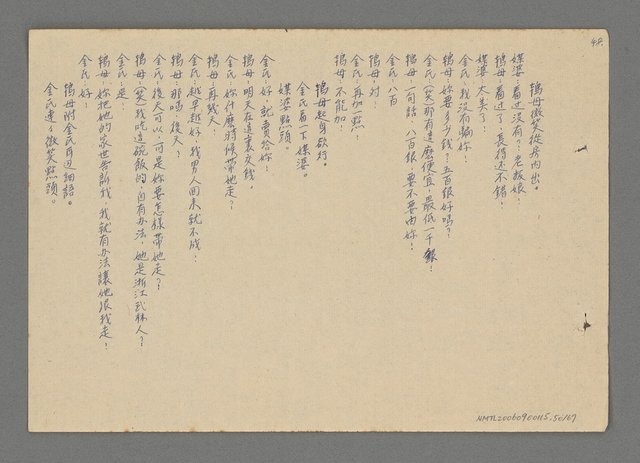 48.
鴇母微笑從房內出。
媒婆：看过沒有？老板娘！
鴇母：看过了，長得还不錯！
媒婆：太美了！
金氏：我沒有騙妳！
鴇母：妳要多少錢？五百銀好嗎？
金氏：（笑）那有這麼便宜，最低一千銀！
鴇母：一句話，八百銀，要不要由妳！
金氏：八百
鴇母：对！
金氏：再加一點！
鴇母：不能加！
鴇母起身欲行。
金氏看一下媒婆。
媒婆點頭。
金氏：好！就賣給妳！
鴇母：明天在這裏交錢。
金氏：妳什麼時候帶她走？
鴇母：再幾天！
金氏：越早越好，我男人回來就不成！
鴇母：那嗎，後天？
金氏：後天可以，可是妳要怎樣帶她走？
鴇母：（笑）我吃這碗飯的，自有办法，她是浙江武林人？
金氏：是！
鴇母：妳把她的家世告訴我，我就有办法讓她跟我走！
金氏：好！
鴇母附金氏耳边細語。
金氏連連微笑點頭。
NMTL20060900115,50/67